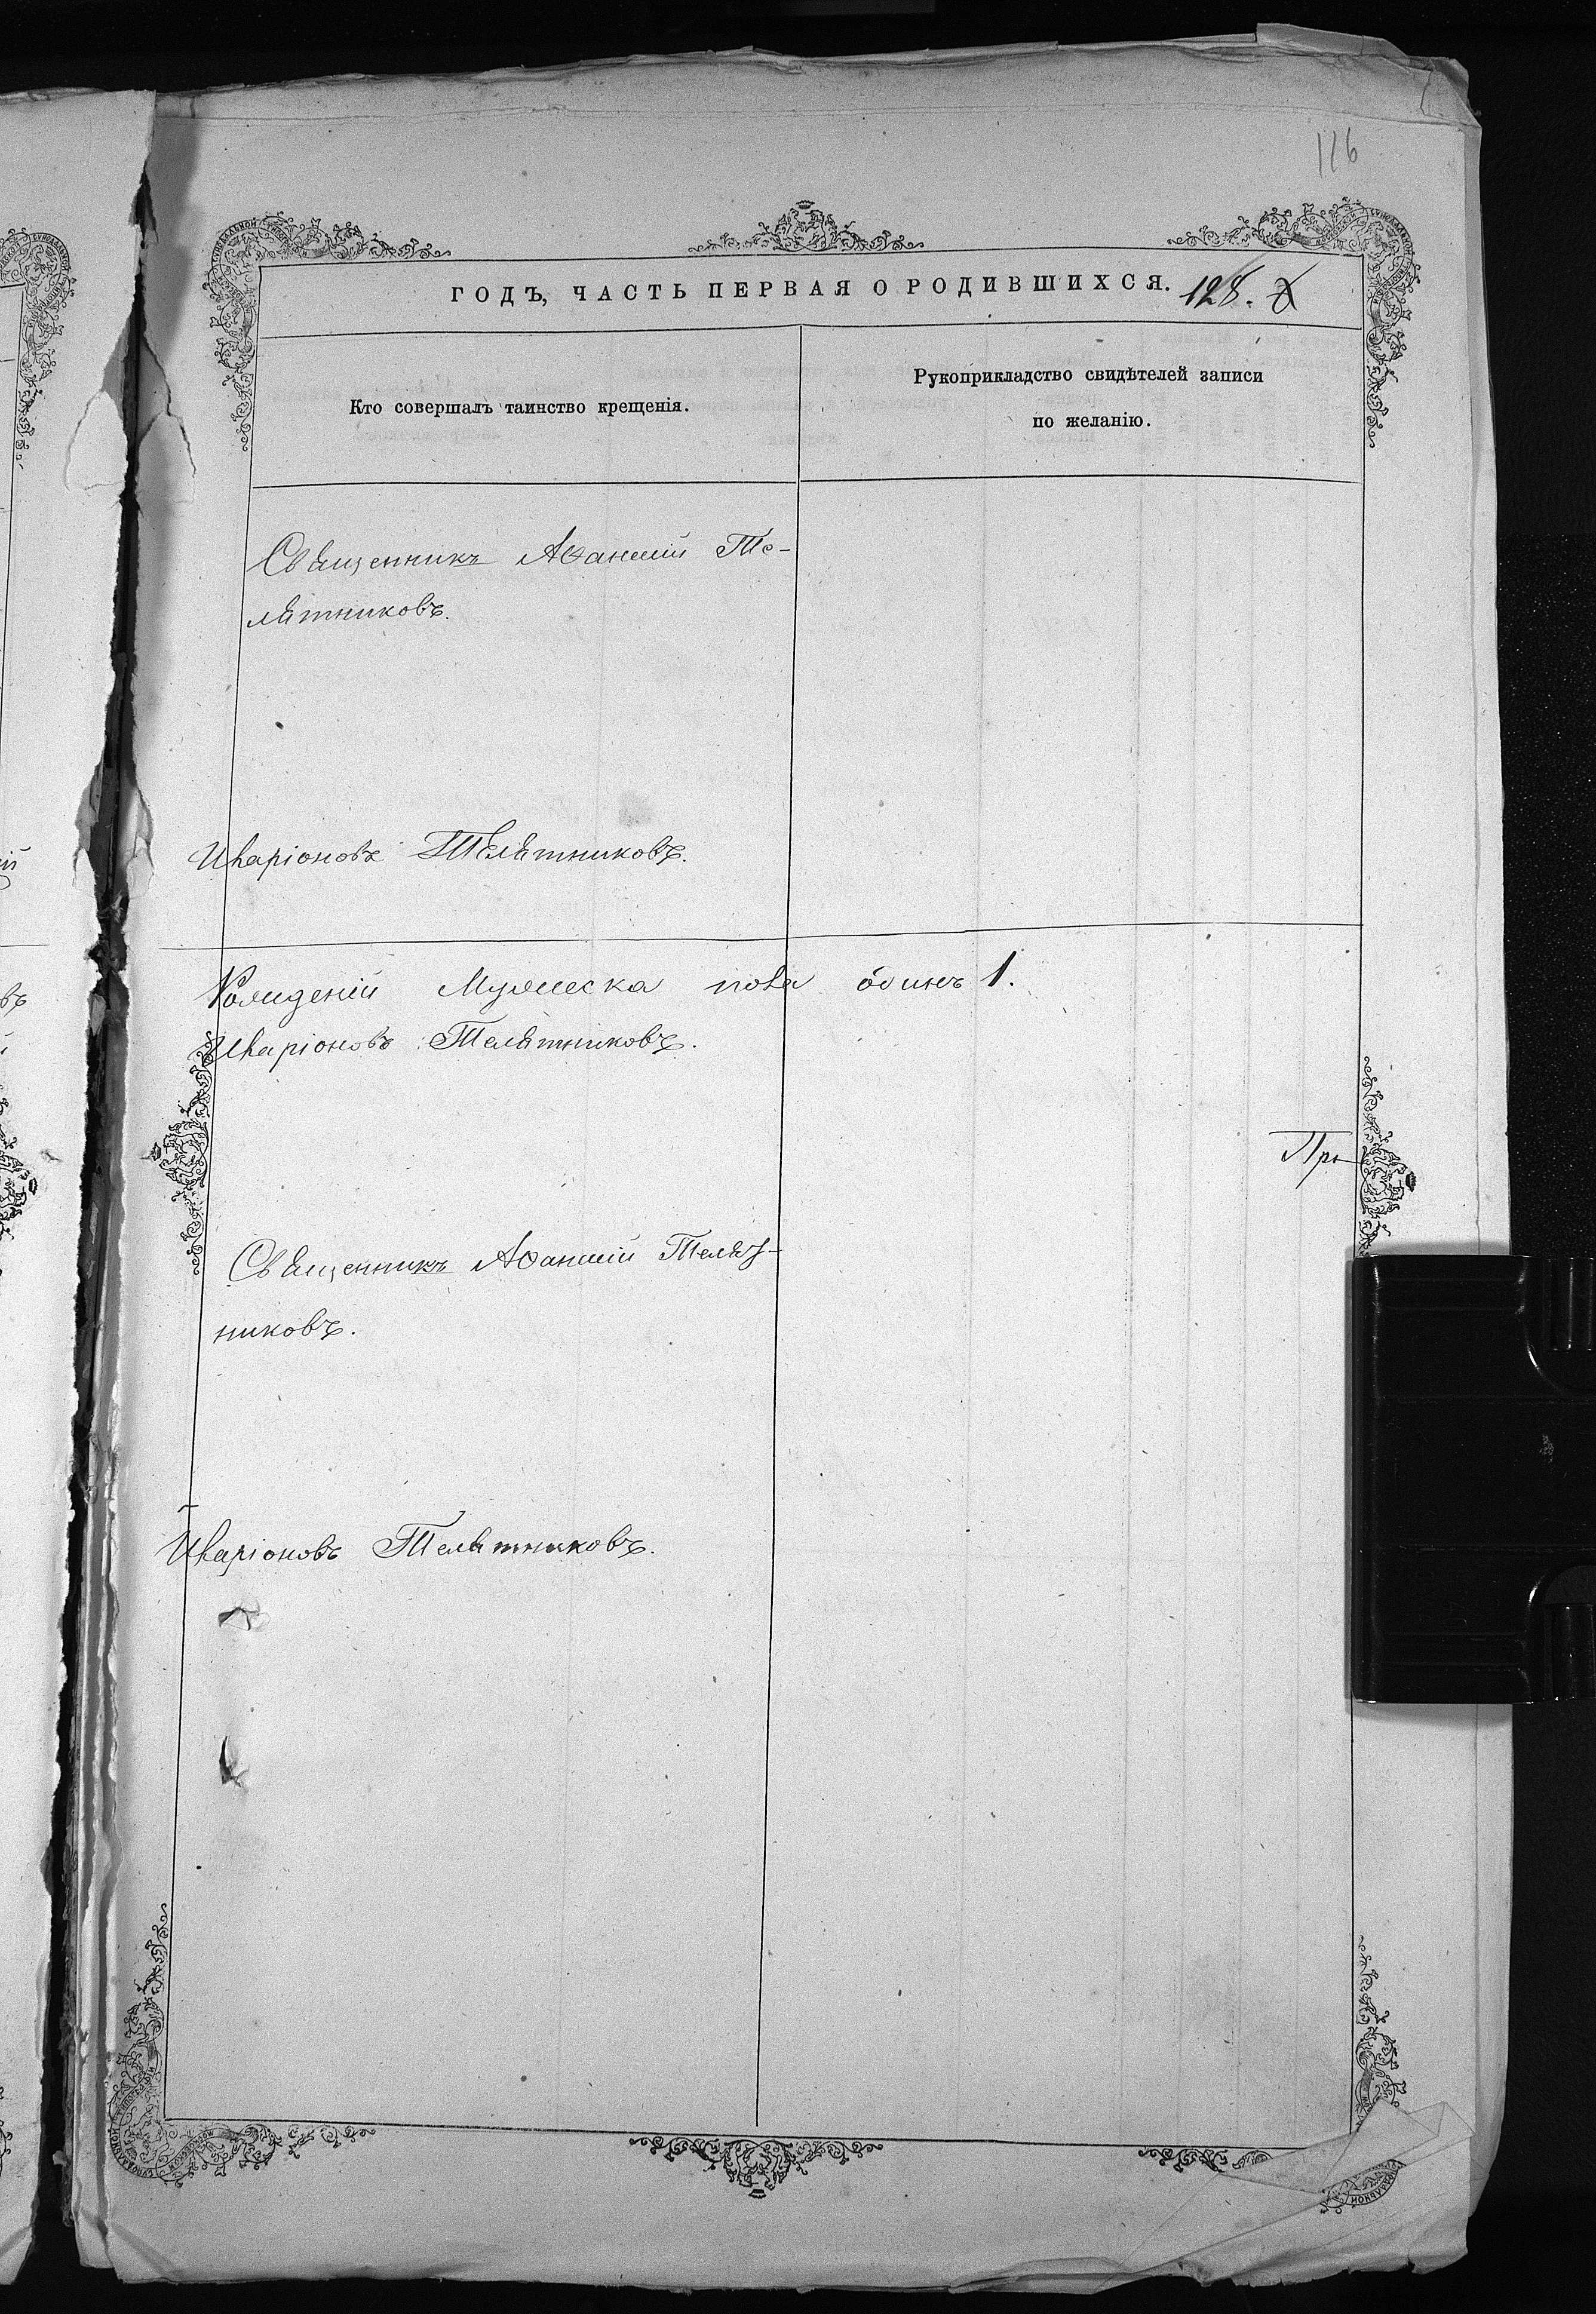 116
ГОДЪ, ЧАСТЬ ПЕРВАЯ О РОДИВШИХСЯ. 128.
Кто совершалъ таинство крещенія.
Рукоприкладство свидѣтелей записи
по желанію.
Священникъ Аѳанасій Те-
лятниковъ.
Иларіоновъ Телятниковъ.
Рожденій Мужеска пола одинъ 1.
Иларіоновъ Телятниковъ.
При
Священникъ Аѳанасій Телят-
никовъ.
Иларіоновъ Телятниковъ.